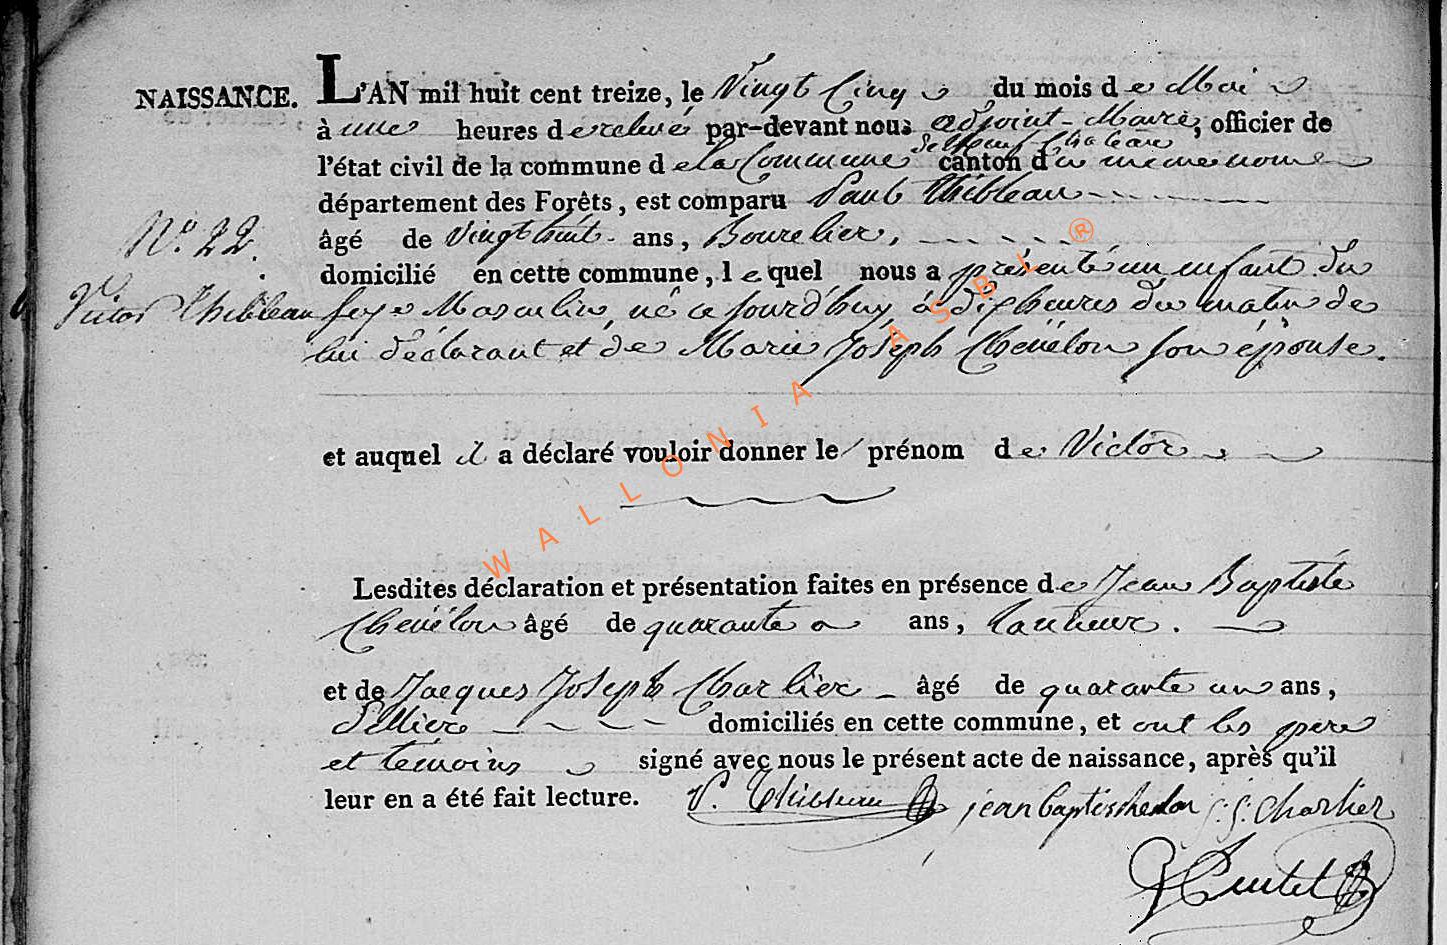 NAISSANCE. L'AN mil huit cent treize, le Vingt Cinq du mois de Mai
à une heures de relevé par-devant nous adjoint-Maire, officier de
de Neufchateau
l'état civil de la commune de la Commune canton du meme nom
département des Forêts, est comparu Paul Thibleau
N.° 22.
âgé de Vingt huit ans, Bourelier,
domicilié en cette commune, lequel nous a présenté un enfant du
Victor Thibleau
sexe Masculin, né ce jourd'huy à dix heures du matin de
lui déclarant et de Marie Joseph Chévélon son épouse.
et auquel il a déclaré vouloir donner le prénom de Victor
Lesdites déclaration et présentation faites en présence de Jean Baptiste
Chévélon âgé de quarante ans,
et de Jacques Joseph Charlier âgé de quarante un ans,
Sellier domiciliés en cette commune, et ont les pere
et temoins signé avec nous le présent acte de naissance, après qu'il
leur en a été fait lecture. P. Thibleau jean baptis J. J. Charlier
WALLONIA ASBL ®